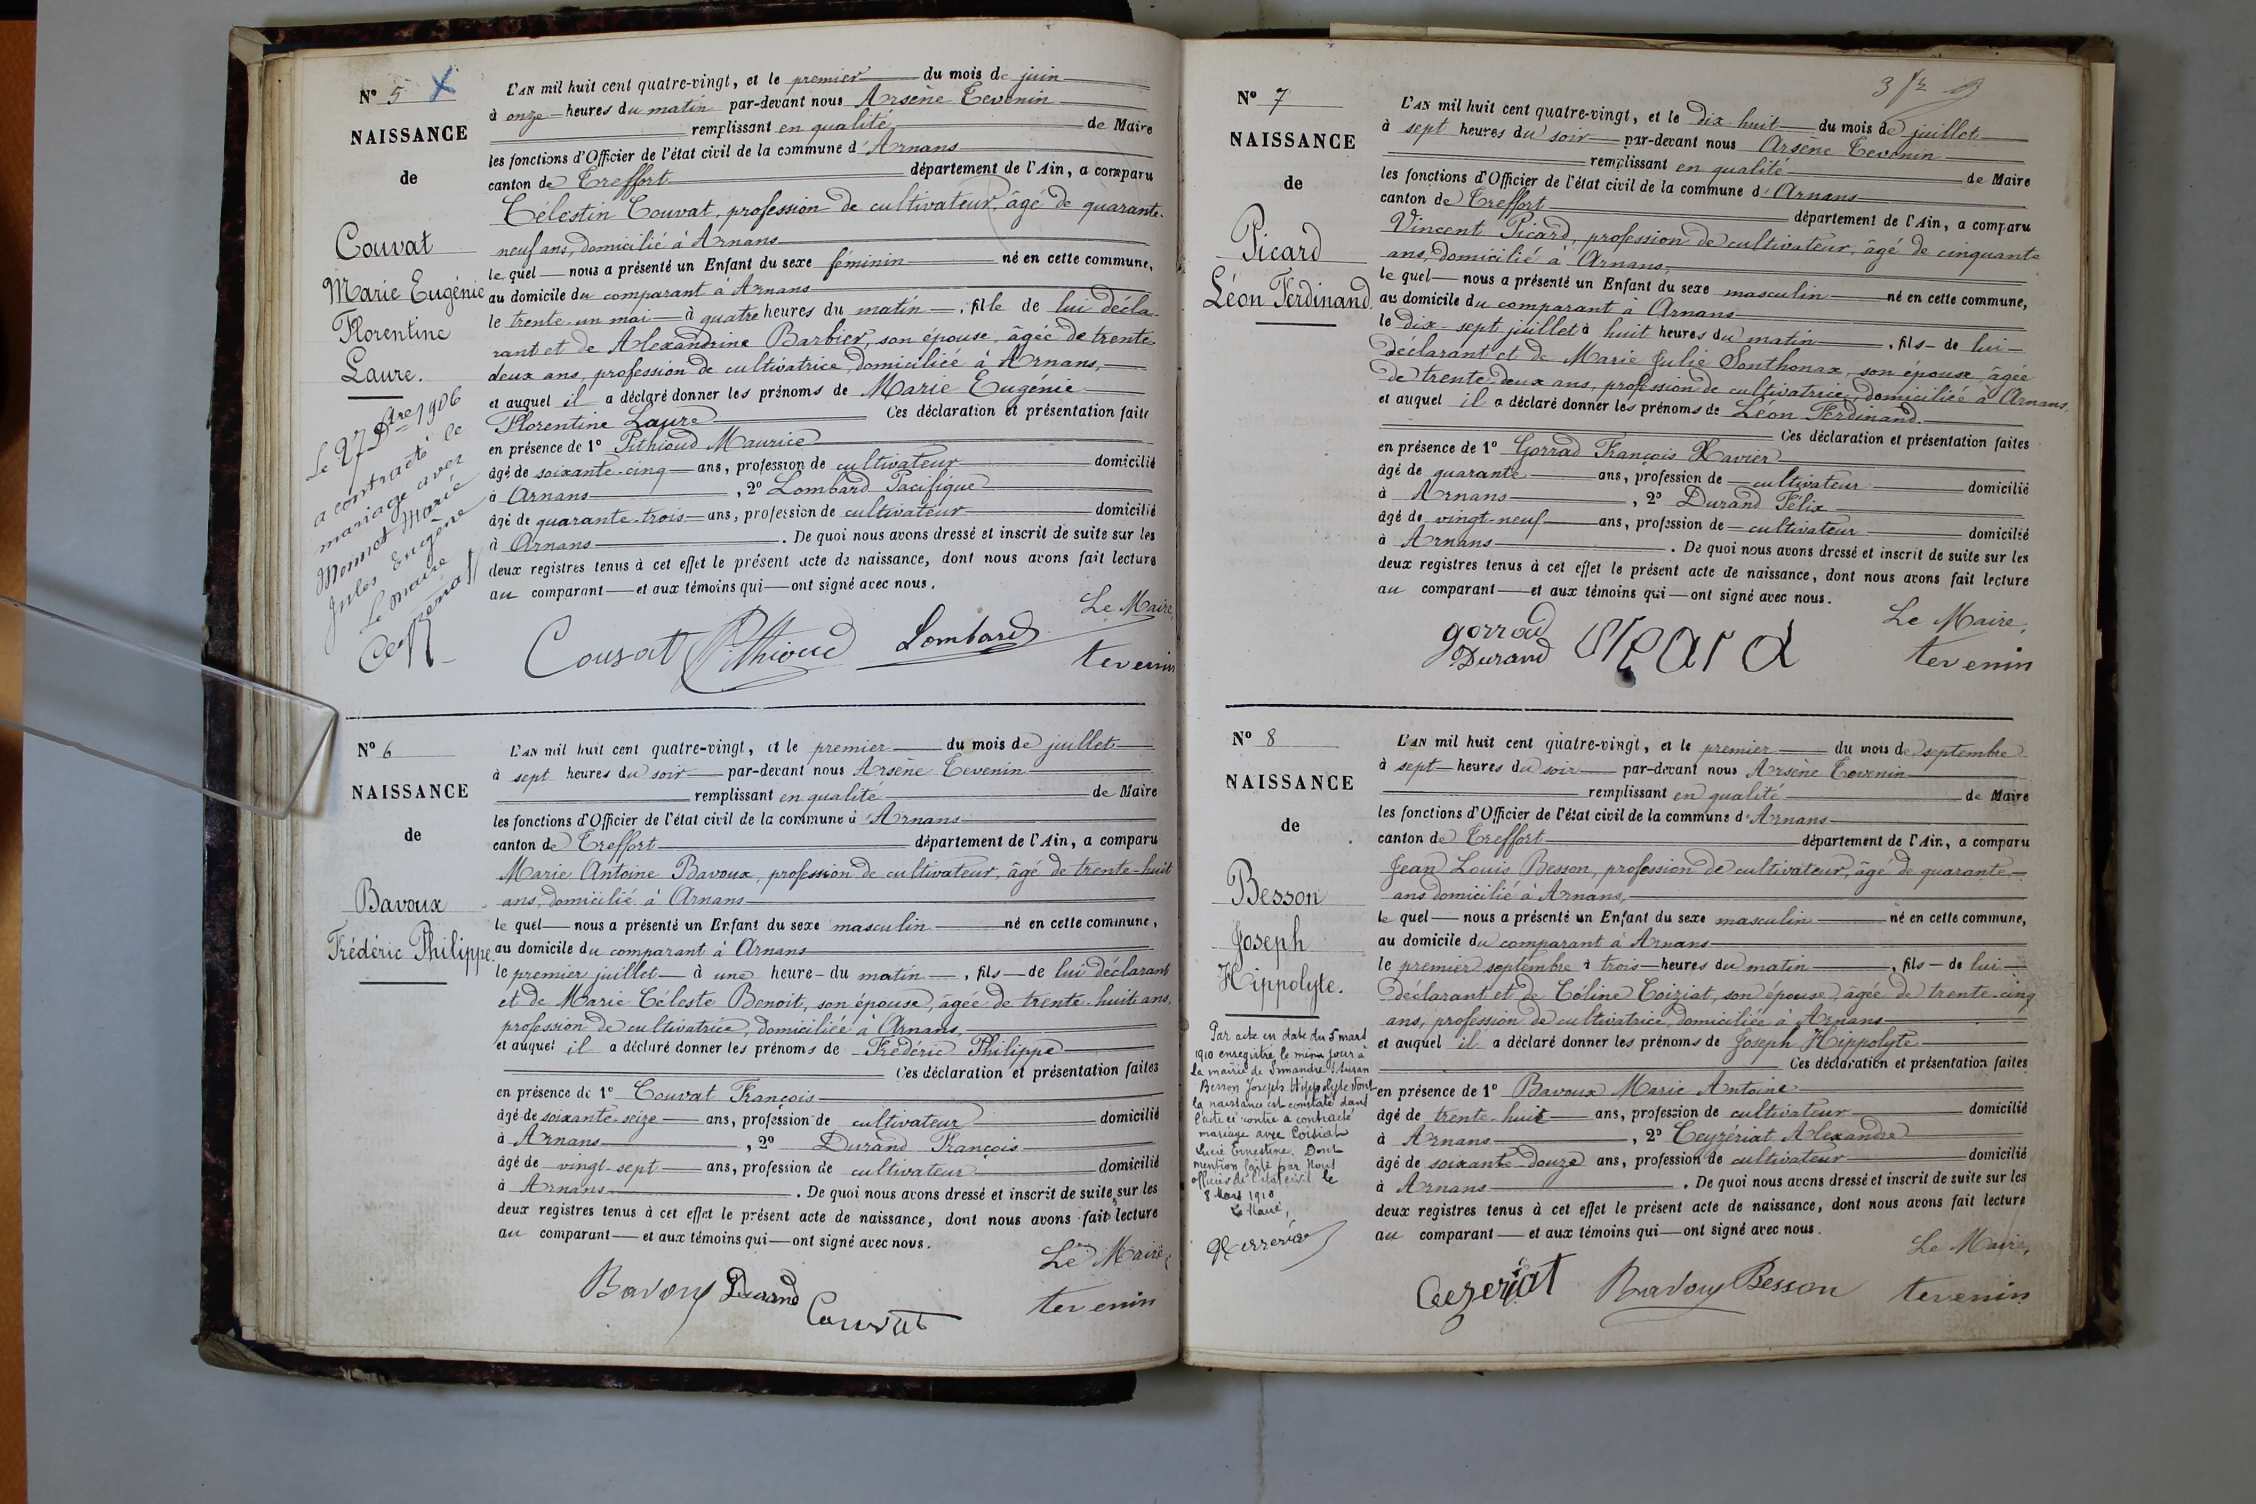 Nº 5
NAISSANCE
de
Couvat
Marie Eugénie
Florentine
Laure.
Le 27 9bre 1906
a contracté
mariage avec
Monnot Marie
Jules Eugène
Le maire
L'AN mil huit cent quatre-vingt, et le premier du mois de juin
à onze heures du matin par-devant nous Arsène Tevenin
remplissant en qualité de Maire
les fonctions d'Officier de l'état civil de la commune d'Arnans
canton de Treffort département de l'Ain, a comparu
Célestin Couvat, profession de cultivateur, âgé de quarante-
neuf ans, domicilié à Arnans
le quel nous a présenté un Enfant du sexe féminin né en cette commune,
au domicile du comparant à Arnans
le trente-un mai à quatre heures du matin, fille de lui décla-
rant et de Alexandrine Barbier, son épouse, âgée de trente-
deux ans, profession de cultivatrice, domiciliée à Arnans,
et auquel il a déclaré donner les prénoms de Marie Eugénie
Florentine Laure Ces déclaration et présentation faite
en présence de 1º Pithioud Maurice
âgé de soixante-cinq ans, profession de cultivateur domicilié
à Arnans, 2º Lombard Pacifique
âgé de quarante-trois ans, profession de cultivateur domicilié
à Arnans. De quoi nous avons dressé et inscrit de suite sur les
deux registres tenus à cet effet le présent acte de naissance, dont nous avons fait lecture
au comparant et aux témoins qui ont signé avec nous.
Le Maire,
Couvat Pithioud Lombard tevenin
Nº 6
NAISSANCE
de
Bavoux
Frédéric Philippe.
L'AN mil huit cent quatre-vingt, et le premier du mois de juillet
à sept heures du soir par-devant nous Arsène Tevenin
remplissant en qualité de Maire
les fonctions d'Officier de l'état civil de la commune d'Arnans
canton de Treffort département de l'Ain, a comparu
Marie Antoine Bavoux, profession de cultivateur, âgé de trente-huit
ans, domicilié à Arnans
le quel nous a présenté un Enfant du sexe masculin né en cette commune,
au domicile du comparant à Arnans
le premier juillet à une heure du matin, fils de lui déclarant
et de Marie Céleste Benoit, son épouse, âgée de trente-huit ans,
profession de cultivatrice, domiciliée à Arnans,
et auquel il a déclaré donner les prénoms de Frédéric Philippe
Ces déclaration et présentation faites
en présence de 1º Couvat François
âgé de soixante-seize ans, profession de cultivateur domicilié
à Arnans, 2º Durand François
âgé de vingt-sept ans, profession de cultivateur domicilié
à Arnans. De quoi nous avons dressé et inscrit de suite sur les
deux registres tenus à cet effet le présent acte de naissance, dont nous avons fait lecture
au comparant et aux témoins qui ont signé avec nous.
Le Maire,
Bavoux Durand Couvat tevenin
Nº 7
NAISSANCE
de
Picard
Léon Ferdinand
L'AN mil huit cent quatre-vingt, et le dix-huit du mois de juillet
à sept heures du soir par-devant nous Arsène Tevenin
remplissant en qualité de Maire
les fonctions d'Officier de l'état civil de la commune d'Arnans
canton de Treffort département de l'Ain, a comparu
Vincent Picard, profession de cultivateur, âgé de cinquante
ans, domicilié à Arnans,
le quel nous a présenté un Enfant du sexe masculin né en cette commune,
au domicile du comparant à Arnans
le dix-sept juillet à huit heures du matin, fils de lui
déclarant et de Marie Julie Sonthonax, son épouse, âgée
de trente-deux ans, profession de cultivatrice, domiciliée à Arnans,
et auquel il a déclaré donner les prénoms de Léon Ferdinand.
Ces déclaration et présentation faites
en présence de 1º Gorrad François Xavier
âgé de quarante ans, profession de cultivateur domicilié
à Arnans, 2º Durand Félix
âgé de vingt-neuf ans, profession de cultivateur domicilié
à Arnans. De quoi nous avons dressé et inscrit de suite sur les
deux registres tenus à cet effet le présent acte de naissance, dont nous avons fait lecture
au comparant et aux témoins qui ont signé avec nous.
Le Maire,
gorrad
Durand Picard tevenin
Nº 8
NAISSANCE
de
Besson
Joseph
Hippolyte.
Par acte en date du 5 mars
1910 enregistré le même jour à
la mairie de Simandre s/ Suran
Besson Joseph Hippolyte dont
la naissance est constatée dans
l'acte ci contre a contracté
mariage avec Coiziat
Lucie Ernestine. Dont
mention faite par Nous
officier de l'état civil le
8 Mars 1910
Le Maire,
L'AN mil huit cent quatre-vingt, et le premier du mois de septembre
à sept heures du soir par-devant nous Arsène Tevenin
remplissant en qualité de Maire
les fonctions d'Officier de l'état civil de la commune d'Arnans
canton de Treffort département de l'Ain, a comparu
Jean Louis Besson, profession de cultivateur, âgé de quarante
ans domicilié à Arnans,
le quel nous a présenté un Enfant du sexe masculin né en cette commune,
au domicile du comparant à Arnans
le premier septembre à trois heures du matin, fils de lui
déclarant et de Céline Coiziat, son épouse, âgée de trente-cinq
ans, profession de cultivatrice, domiciliée à Arnans
et auquel il a déclaré donner les prénoms de Joseph Hippolyte
Ces déclaration et présentation faites
en présence de 1º Bavoux Marie Antoine
âgé de trente-huit ans, profession de cultivateur domicilié
à Arnans, 2º Ceyzériat Alexandre
âgé de soixante-douze ans, profession de cultivateur domicilié
à Arnans. De quoi nous avons dressé et inscrit de suite sur les
deux registres tenus à cet effet le présent acte de naissance, dont nous avons fait lecture
au comparant et aux témoins qui ont signé avec nous.
Le Maire,
Ceezeriat Bavoux Besson tevenin